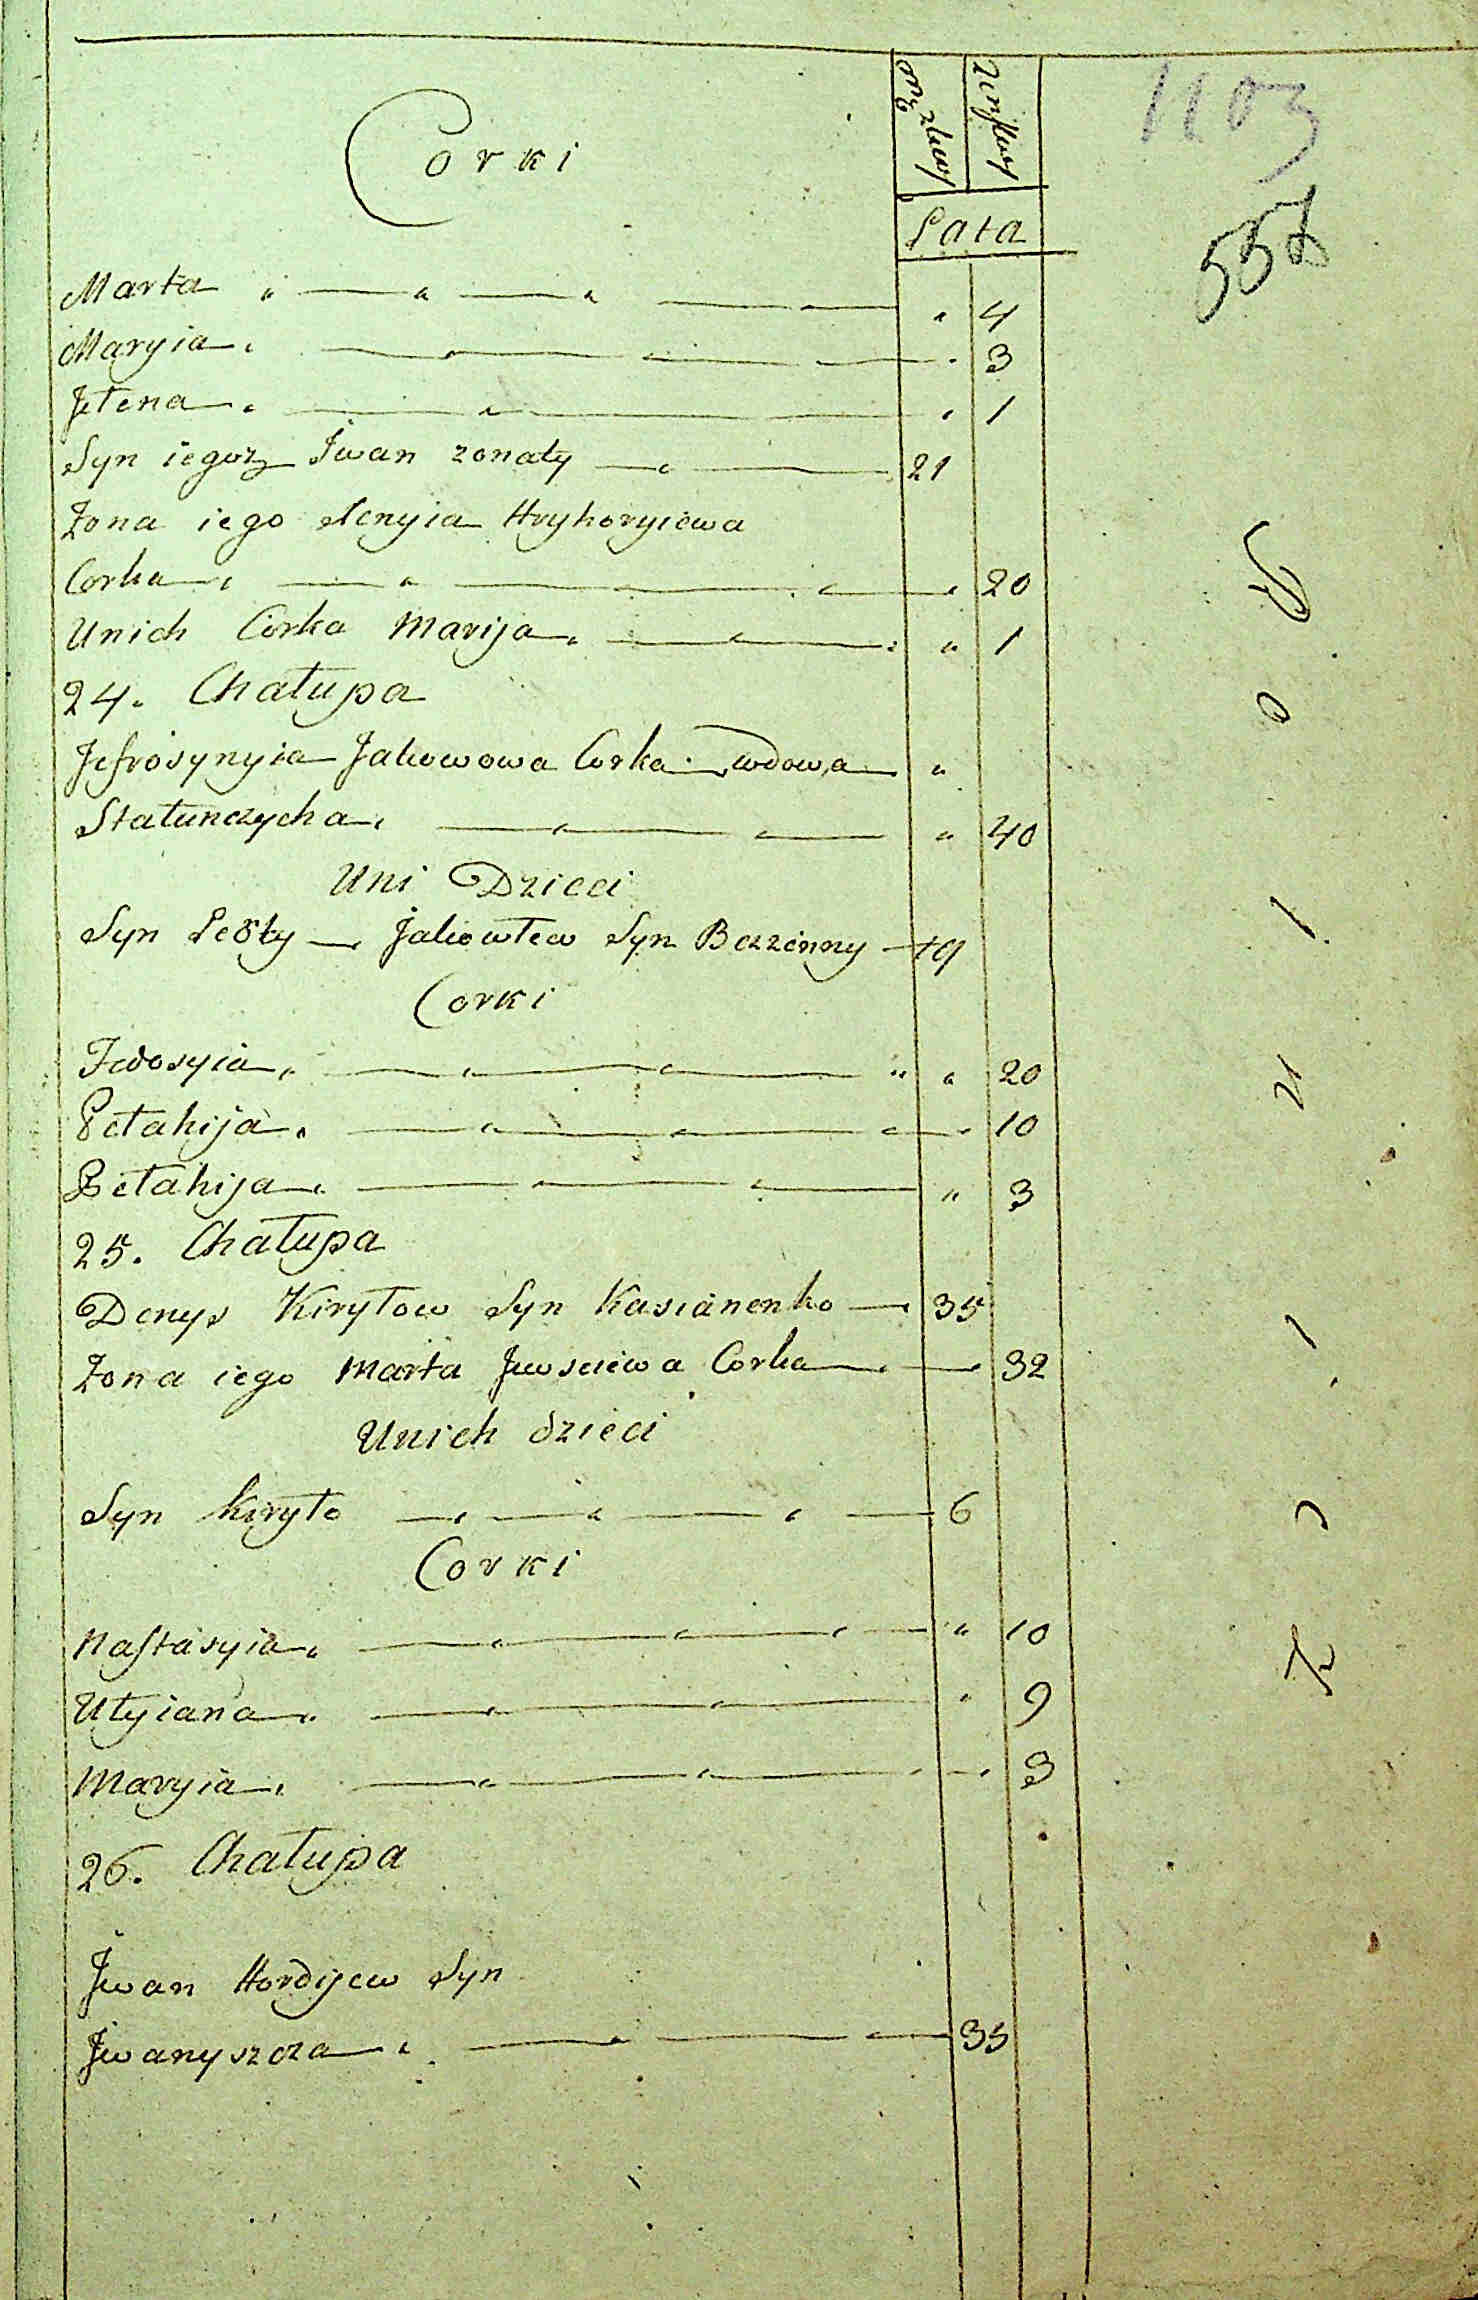 Corki
Męzkiey Zenskiey
Lata
Marta 4
Maryia 3
Jełena 1
Syn iegoz Jwan zonaty 21
Żona iego Xenyia Hryhoryiewa
Corka 20
Unich Corka Marija 1
24. Chałupa
Jefrosynyia Jakowowa Corka wdowa
Stałunczycha 40
Uni Dzieci
Syn Jakowlew Syn Bezzenny 19
Corki
Fedosyia 20
Pełahija 10
Pełahija 3
25. Chałupa
Denys Kiryłow Syn Kasianenko 35
Żona iego Marta Corka 32
Unich dzieci
Syn Kiryło 6
Corki
Nastasyia 10
Utyiana 9
Maryia 3
26. Chałupa
Jwan Hordijew Syn
Jwanyszcza 35
1103
557
0
1
1